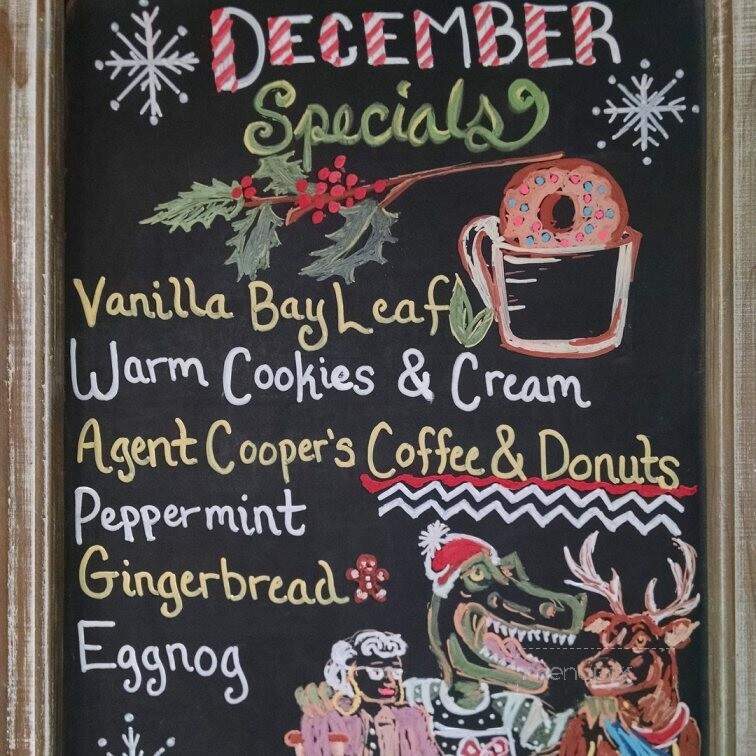 DECEMBER
Specials
Vanilla Bay Leaf
Warm Cookies & Cream
Agent Cooper's Coffee & Donuts
Peppermint
Gingerbread
Eggnog